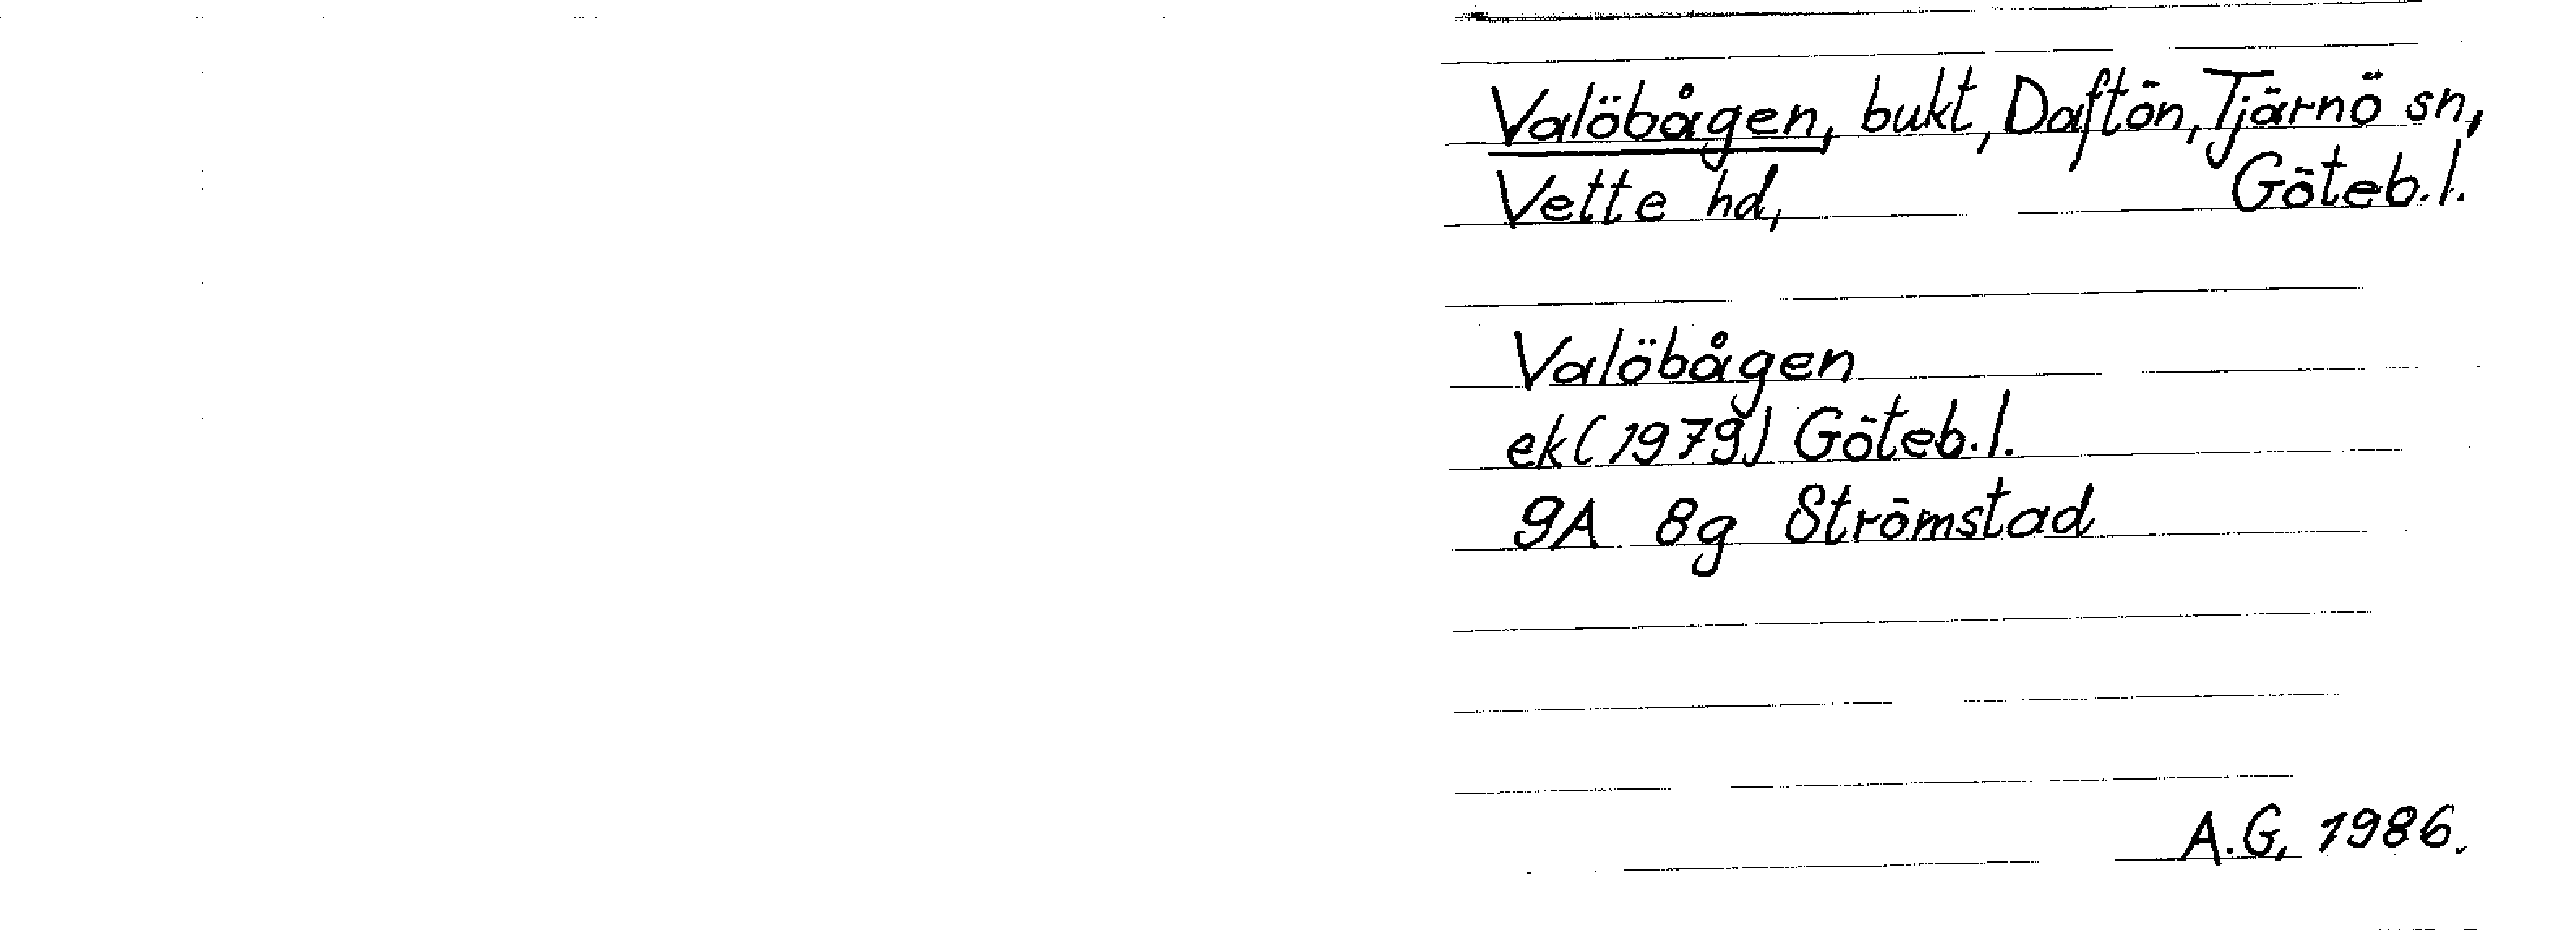 Valöbågen, bukt, Daftön, Tjärnö sn,
Vette hd, Göteb.l.
Valöbågen
ek (1979) Göteb.l.
9A 8g Strömstad
A.G, 1986.